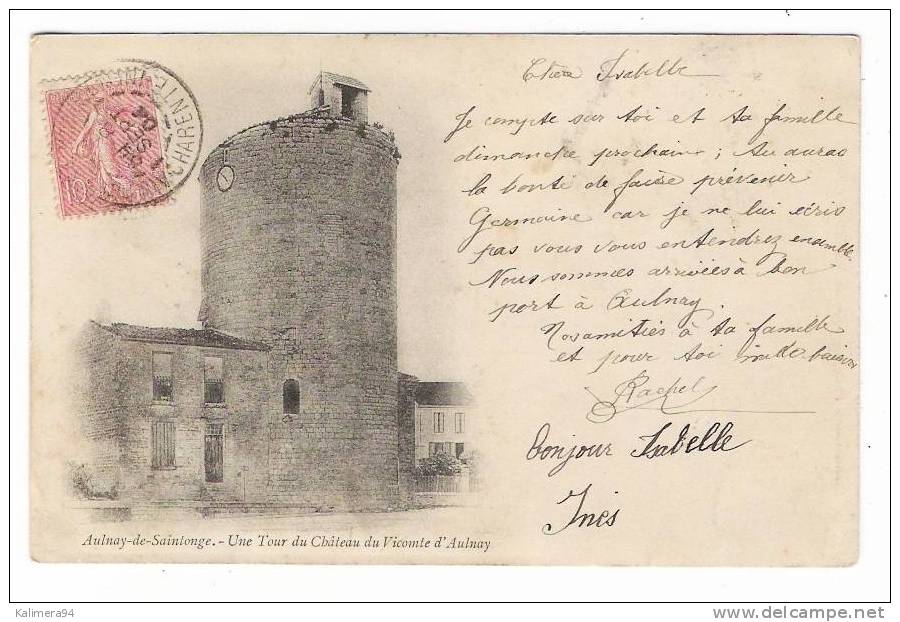 Chère Isabelle
Je compte sur toi et ta famille
dimanche prochain ; Tu auras
la bonté de faire prévenir
Germaine car je ne lui écris
pas vous vous entendrez ensemble.
Nous sommes arrivées à bon
port à Aulnay.
Nos amitiés à ta famille
et pour toi mille baisers
Rachel
Bonjour Isabelle
Inès
10
CHARENTE INF
SEPT
04
Aulnay-de-Saintonge. - Une Tour du Château du Vicomte d'Aulnay
Kalimera94
http://www.delcampe.net